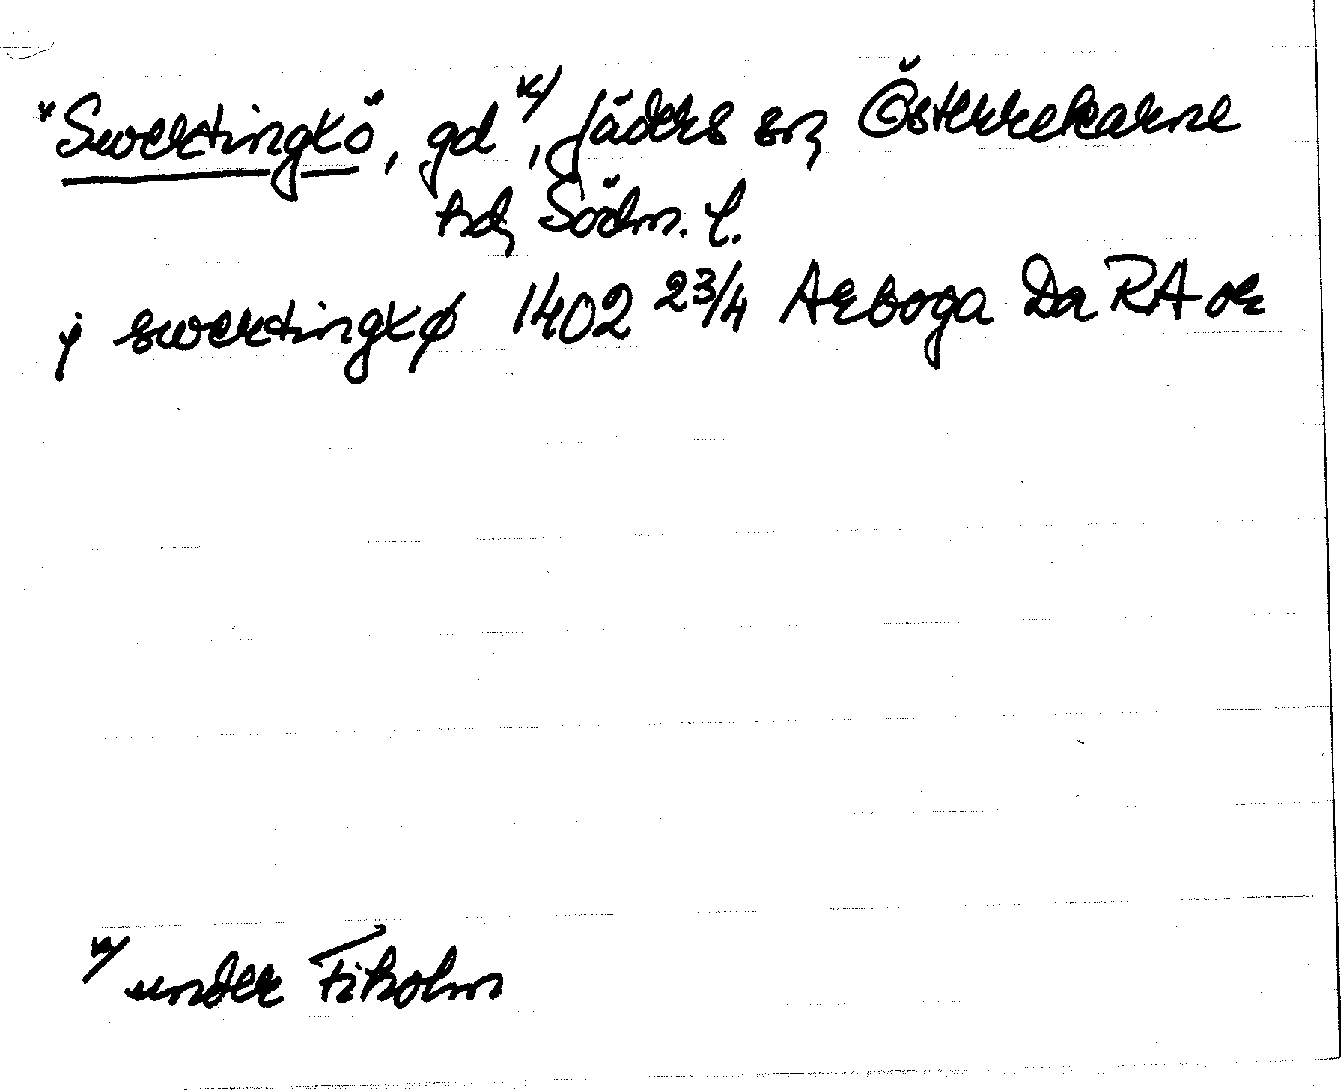 *Swertingkö, gd x/, Jäders sn, Österrekarne
hd, Södm. l.
j swertingkø 1402 23/4 Arboga Da RA or
x/ under Fiholm